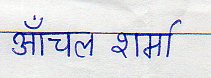 आँचल शर्मा